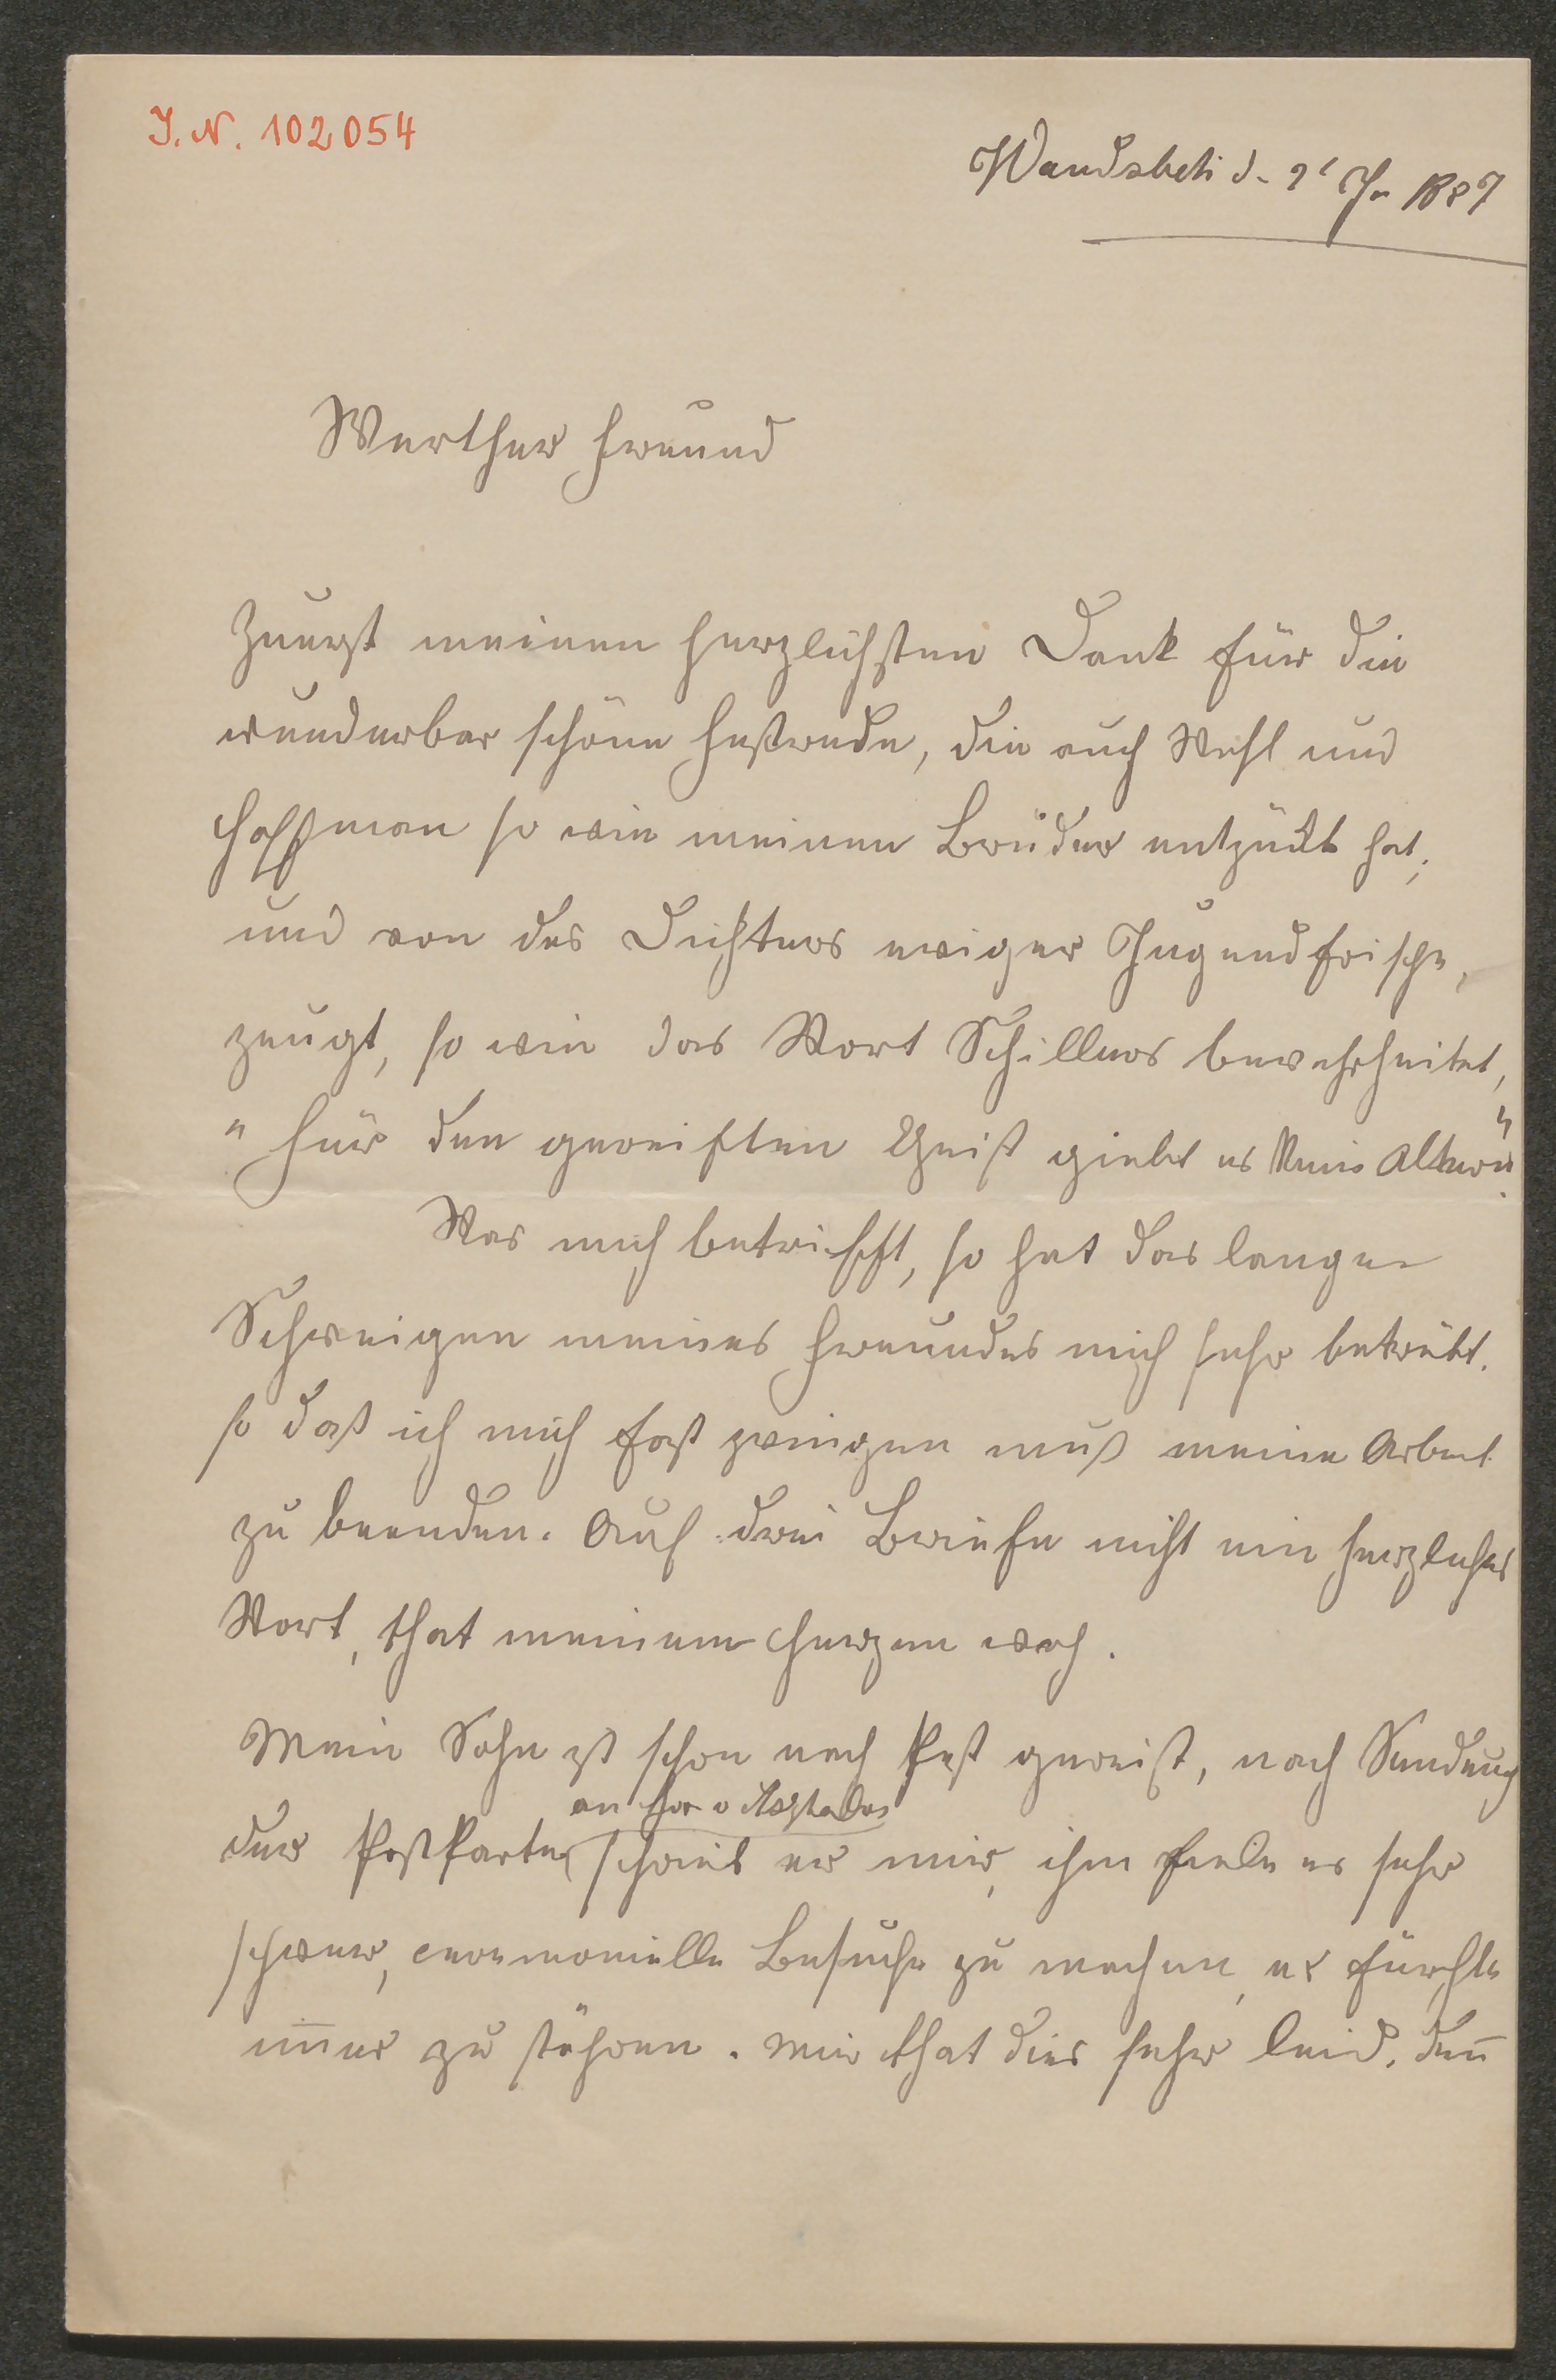 J. N. 102054
Wandsbeck d. 2t J 1887
Werther Freund
Zuerst meinen herzlichsten Dank für die
wunderbar schöne Festrede, die auch Wehl und
Hoffman so wie meinen Bruder entzückt hat,
und von des Dichters ewiger Jugendfrische,
zeugt, so wie das Wort Schillers bewahrheitet,
"Für den gereiften Geist giebt es kein Altern"
Was mich betrifft, so hat das lange
Schweigen meines Freundes mich sehr betrübt.
so daß ich mich fast zwingen muß meine Arbeit
zu beenden. Auf drei Briefe nicht ein herzliches
Wort, that meinem Herzen weh.
Mein Sohn ist schon nach Pest gereist, nach Sendung
an Her v
der Postkarte schrieb er mir, ihm fiele es sehr
schwer, ceremonielle Besuche zu machen, er fürchte
im̄er zu stöhren. Mir that dies sehr leid. den̄